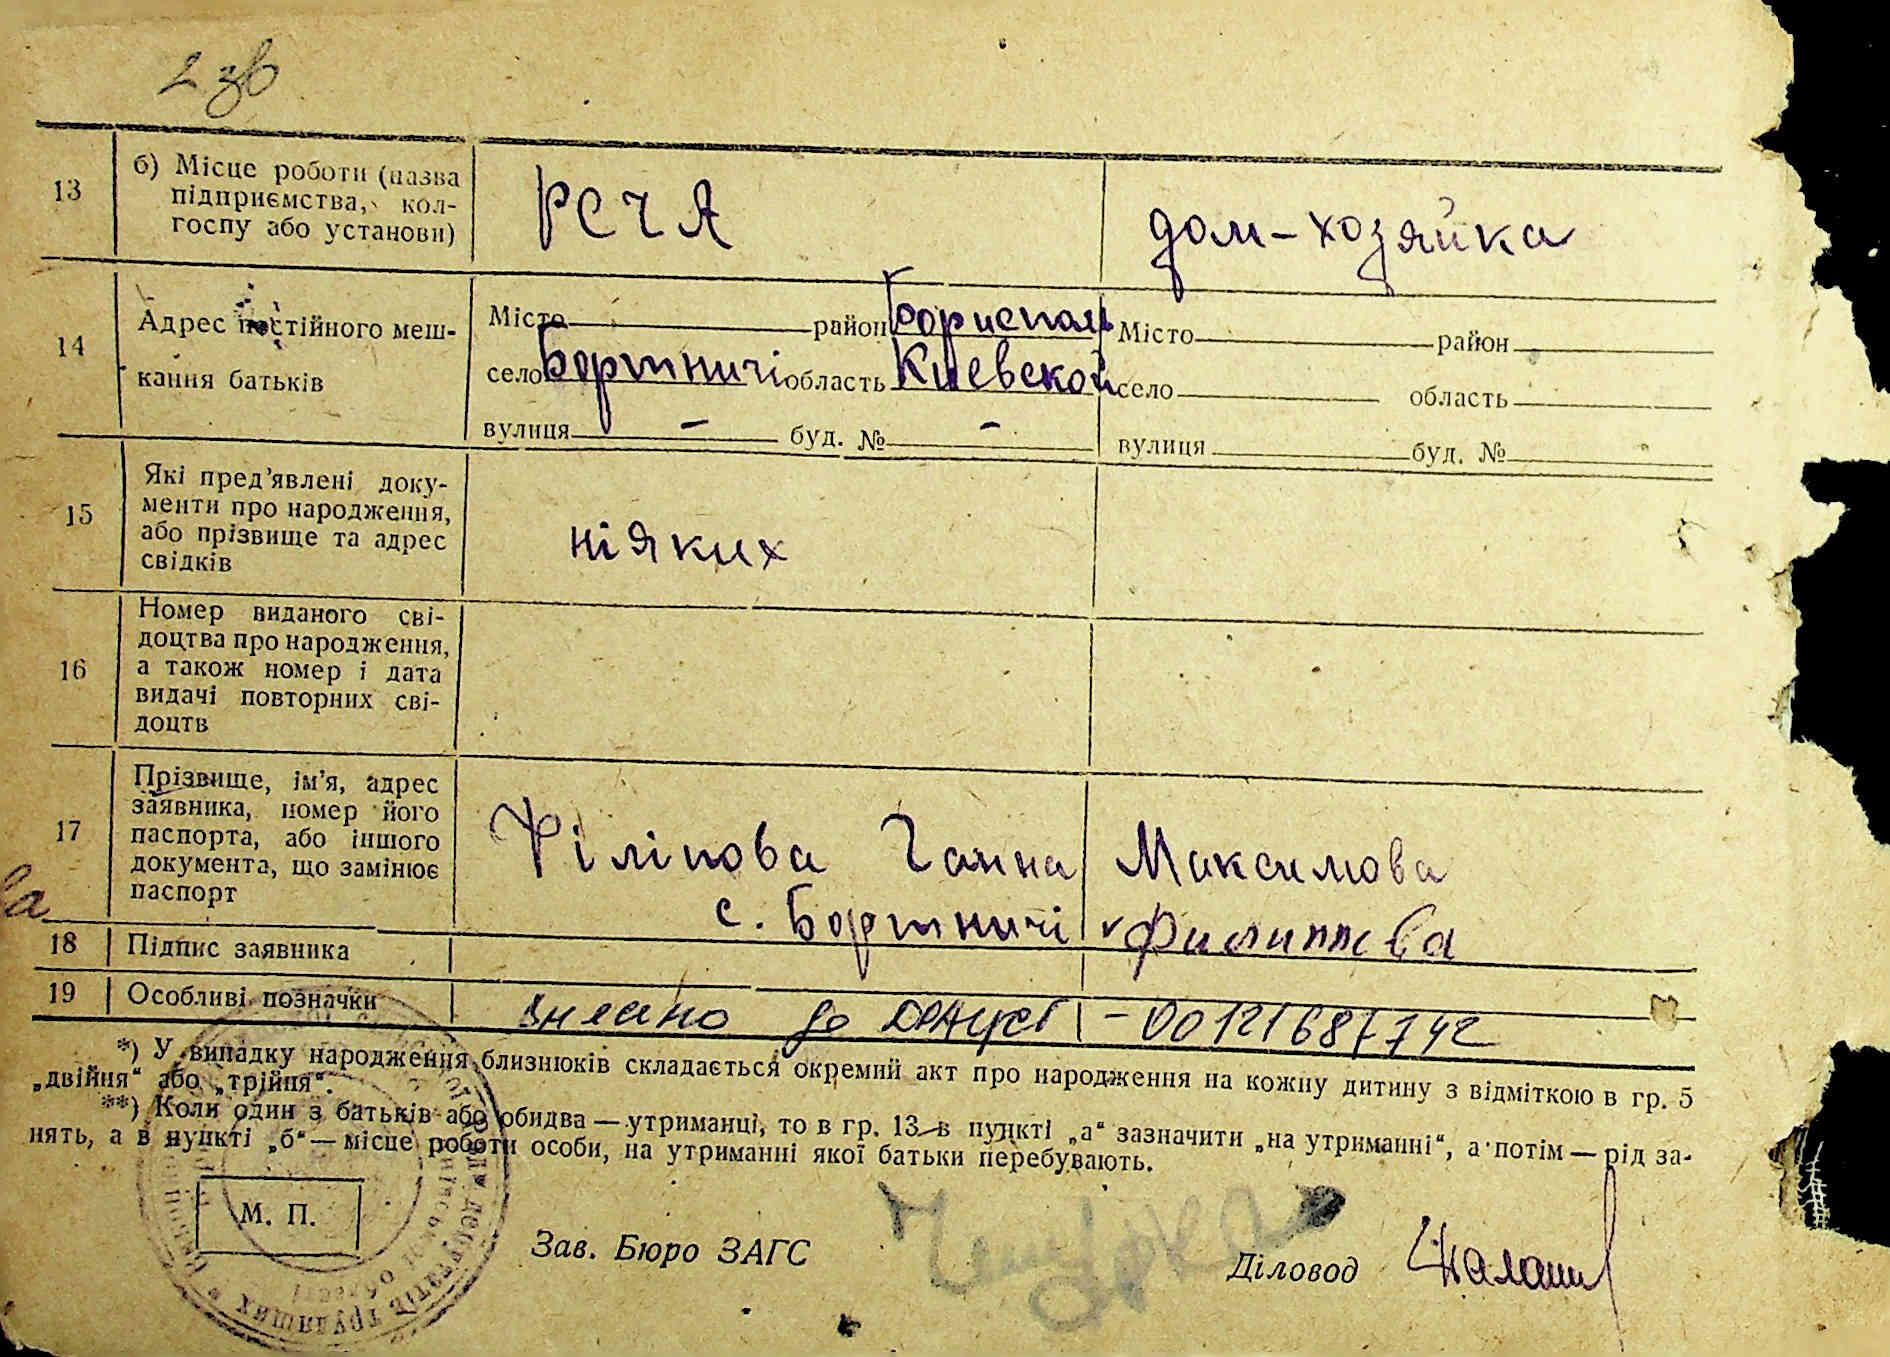 2 зв
13 б) Місце роботи (назва підприємства, кол-госпу або установи) РСЧА дом-хозяйка
14 Адрес постійного меш-кання батьків
Місто район Бориспол Місто район
село Бортничі область Киевской село область
вулиця – буд. № – вулиця буд. №
15 Які пред'явлені доку-
менти про народження,
або прізвище та адрес
свідків
ніяких
16 Номер виданого сві-
доцтва про народження,
а також номер і дата
видачі повторних сві-
доцтв
17 Прізвище, ім'я, адрес
заявника, номер його
паспорта, або іншого
документа, що замінює
паспорт
Філіпова Ганна Максимова
с. Бортничі
18 Підпис заявника Филиппова
19 Особливі позначки внесено до ДРАЦСГ – 00121687742
*) У випадку народження близнюків складається окремий акт про народження на кожну дитину з відміткою в гр. 5
„двійня“ або „трійня“.
**) Коли один з батьків або обидва — утриманці, то в гр. 13 в пункті „а“ зазначити „на утриманні“, а потім — рід за-
нять, а в пункті „б“ — місце роботи особи, на утриманні якої батьки перебувають.
М. П.
Зав. Бюро ЗАГС
Діловод